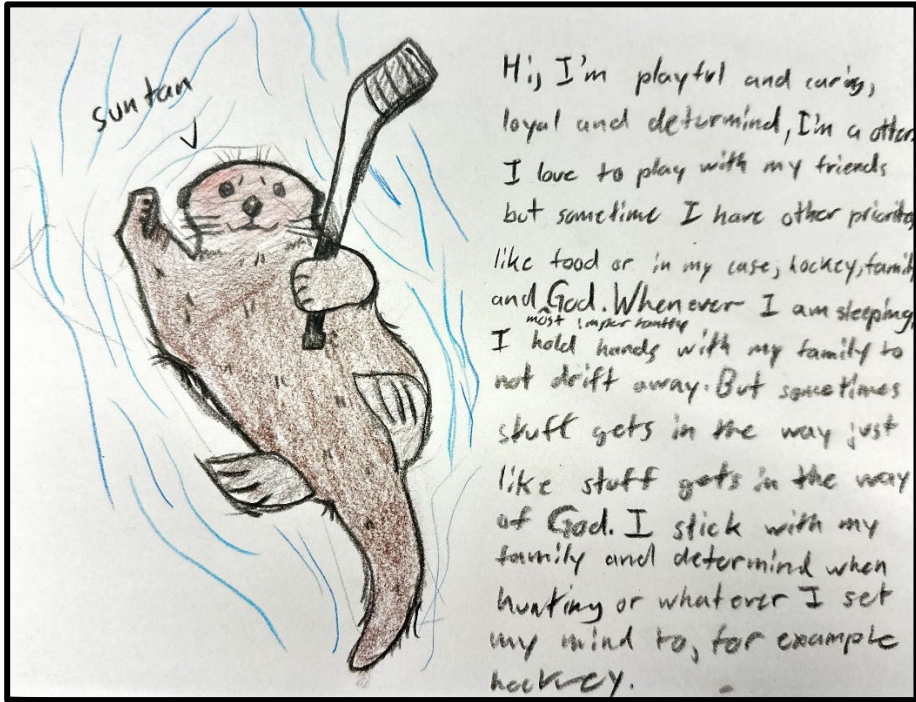 suntan
Hi, I'm playful and caring,
loyal and determind, I'm a otter.
I love to play with my friends
but sometime I have other
like food or in my case, hockey, family
and God. Whenever I am sleeping,
most importantly
I hold hands with my family to
not drift away. But sometimes
stuff gets in the way just
like stuff gets in the way
of God. I stick with my
family and determind when
hunting or whatever I set
my mind to, for example
hockey.